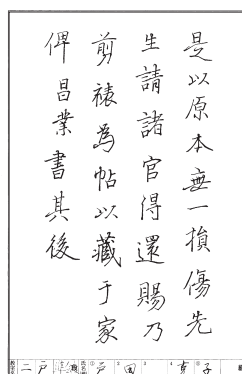 是以原本無一損傷先
生請諸官得還賜乃
剪裱為帖以藏于家
俾昌業書其後
二戸 戸田 子